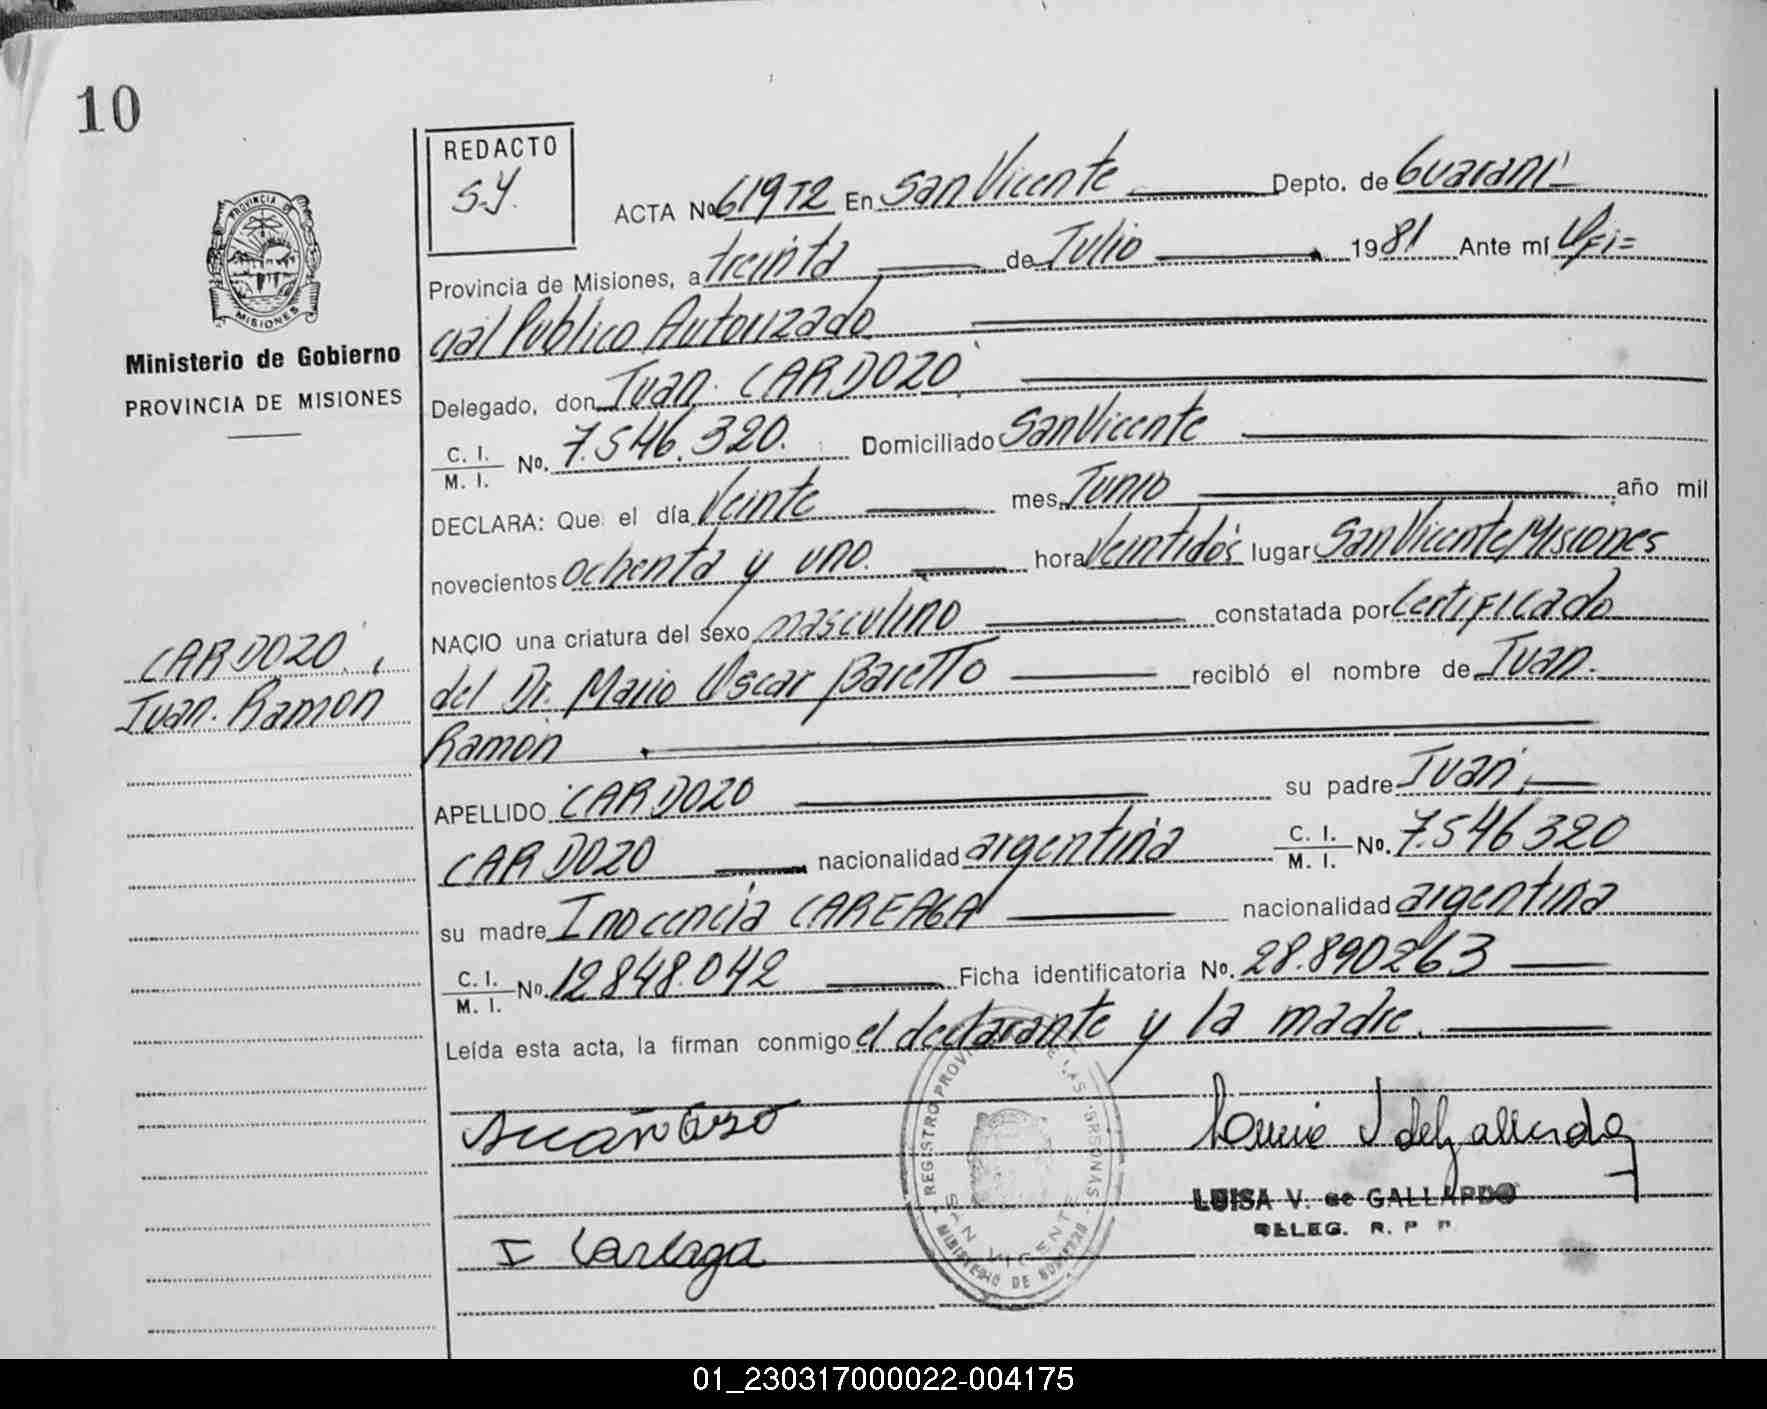 10
REDACTO
S.Y.
PROVINCIA DE
MISIONES
Ministerio de Gobierno
PROVINCIA DE MISIONES
CARDOZO,
Juan. Ramon
ACTA No 619T2 En San Vicente Depto. de Guaraní
Provincia de Misiones, a treinta de Julio 1981 Ante mí Ofi=
cial Público Autorizado
Delegado, don Juan. CARDOZO
C. I. / M. I. No. 7.546.320. Domiciliado San Vicente
DECLARA: Que el día Veinte mes Junio año mil
novecientos ochenta y uno. hora Veintidós lugar San Vicente, Misiones
NACIO una criatura del sexo masculino constatada por Certificado
del Dr. Mario Oscar Baretto recibió el nombre de Juan.
Ramon
APELLIDO CARDOZO su padre Juan,
CARDOZO nacionalidad argentina C. I. / M. I. No. 7.546.320
su madre Inocencia CAREAGA nacionalidad argentina
C. I. / M. I. No. 12.848.042 Ficha identificatoria No. 28.890.263
Leída esta acta, la firman conmigo el declarante y la madre.
REGISTRO PROVINCIAL DE LAS PERSONAS
SAN VICENTE
MINISTERIO DE GOBIERNO
LUISA V. de GALLARDO
DELEG. R. P. P.
I Careaga
01_230317000022-004175